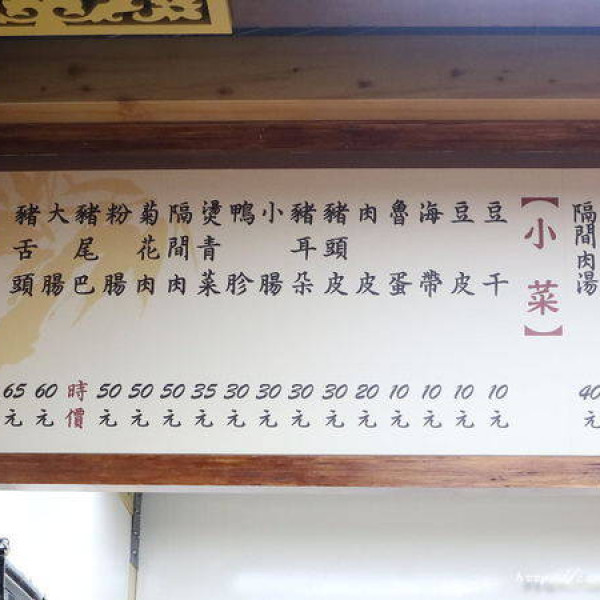 隔間肉湯 40元
【小菜】
豆干 10元
豆皮 10元
海帶 10元
魯蛋 10元
肉皮 20元
豬頭皮 30元
豬耳朵 30元
小腸 30元
鴨胗 30元
燙青菜 35元
隔間肉 50元
菊花肉 50元
粉腸 50元
豬尾巴 時價
大腸 60元
豬舌頭 65元